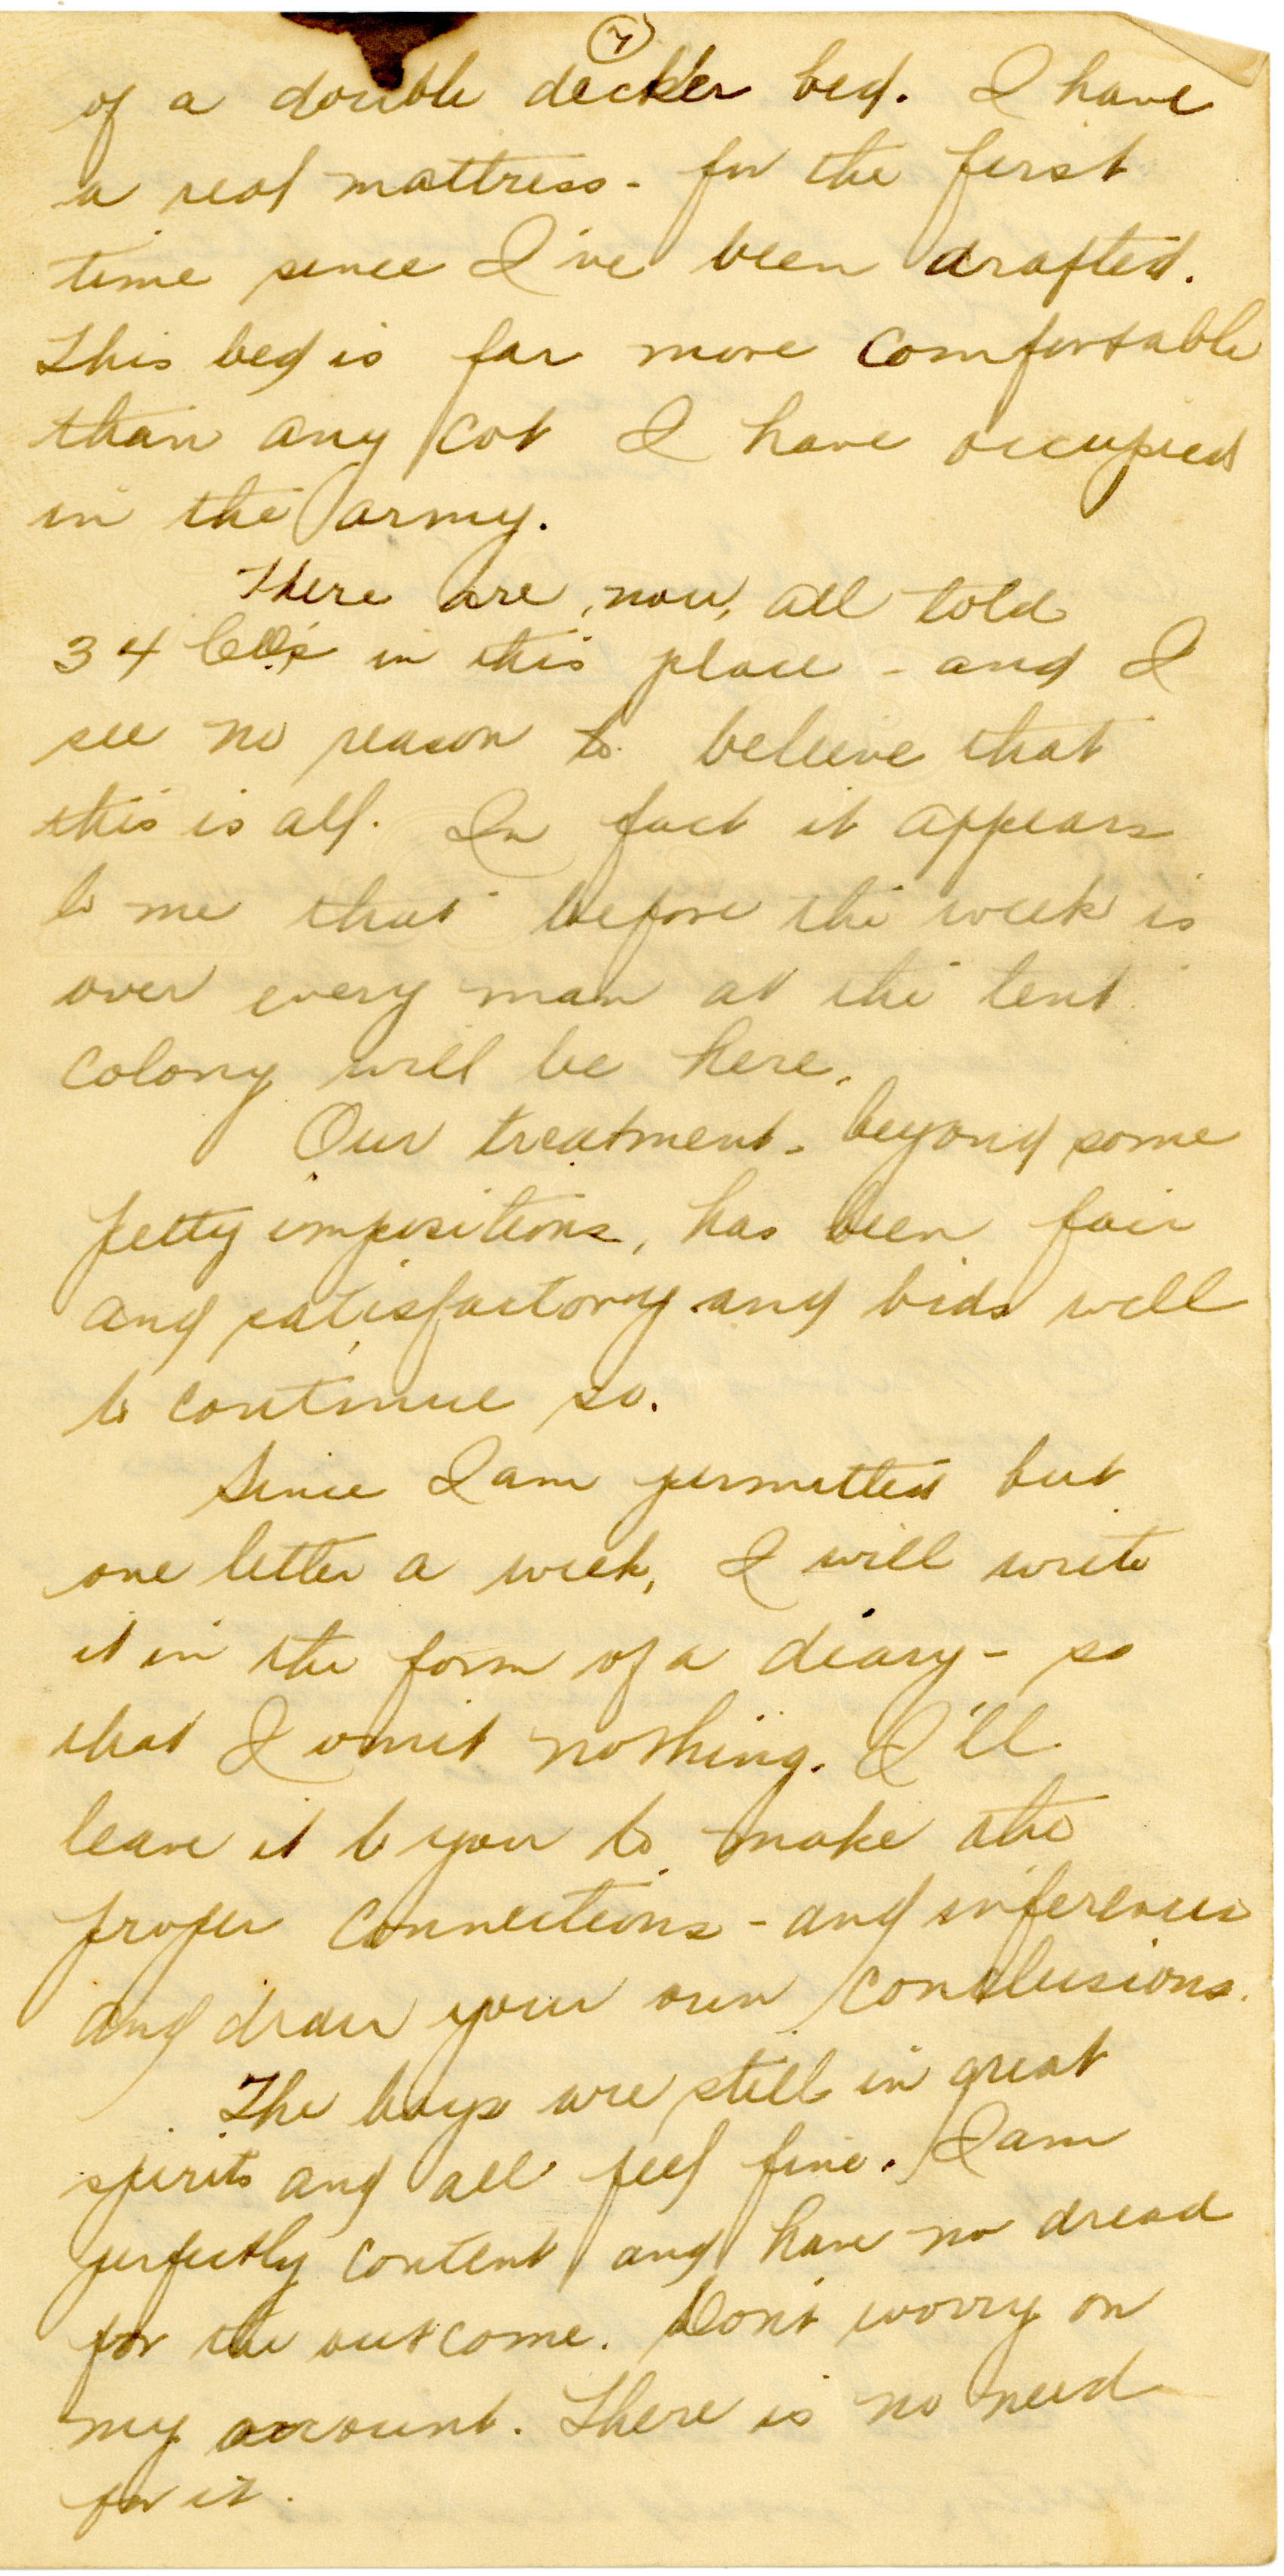 7
of a double decker bed. I have
a real mattress - for the first
time since I've been drafted.
This bed is far more comfortable
than any cot I have occupied
in the army.
There are, now, all told
34 C.O.'s in this place - and I
see no reason to believe that
this is all. In fact it appears
to me that before the week is
over every man at the tent
colony will be here.
Our treatment - beyond some
petty impositions, has been fair
and satisfactory and bids well
to continue so.
Since I am permitted but
one letter a week, I will write
it in the form of a diary - so
that I omit nothing. I'll
leave it to you to make the
proper connections - and inferences
and draw your own conclusions.
The boys are still in great
spirits and all feel fine. I am
perfectly content and have no dread
for the outcome. Don't worry on
my account. There is no need
for it.